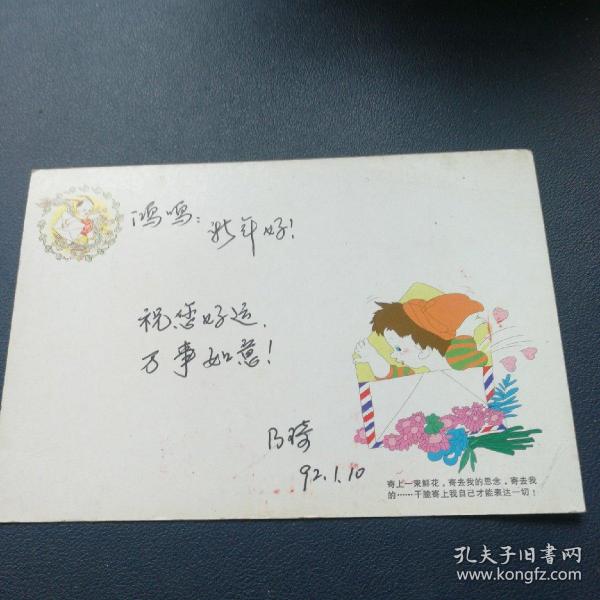 鸿鸣：
新年好！
祝您好运，
万事如意！
乃琦
92.1.10
寄上一束鲜花，寄去我的思念，寄去我
的……干脆寄上我自己才能表达一切！
孔夫子旧书网
www.kongfz.com